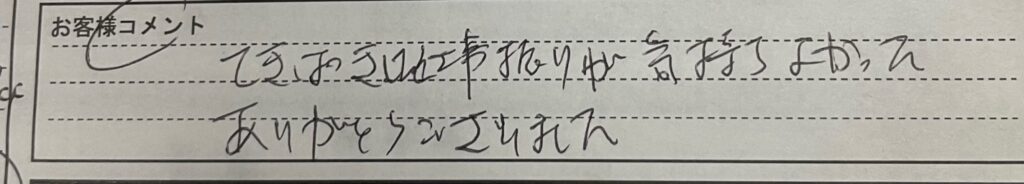 お客様コメント
てきぱき仕事振りが気持ちよかった
ありがとうございました